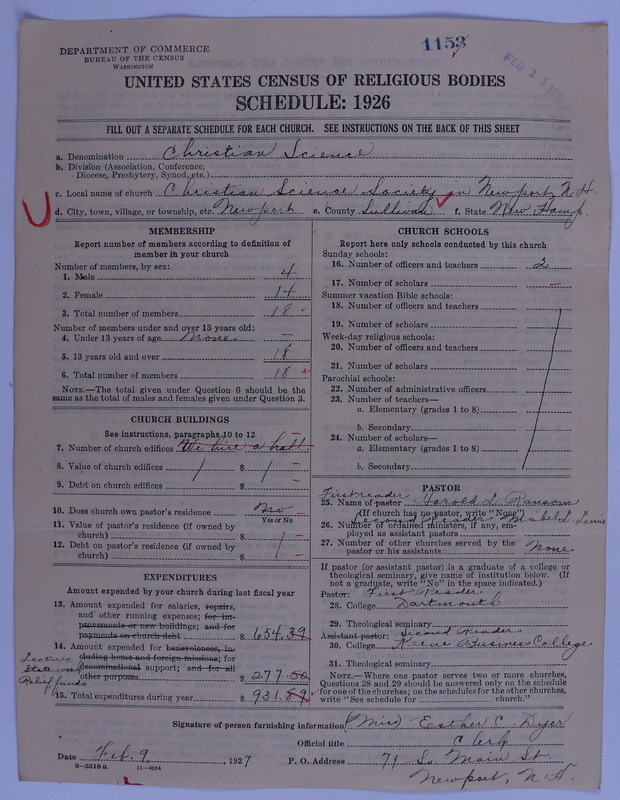 DEPARTMENT OF COMMERCE
BUREAU OF THE CENSUS
WASHINGTON
1153
FEB 11
UNITED STATES CENSUS OF RELIGIOUS BODIES
SCHEDULE: 1926
FILL OUT A SEPARATE SCHEDULE FOR EACH CHURCH. SEE INSTRUCTIONS ON THE BACK OF THIS SHEET
a. Denomination Christian Science
b. Division (Association, Conference,
Diocese, Presbytery, Synod, etc.)
c. Local name of church Christian Science Society in Newport, N.H.
d. City, town, village, or township, etc. Newport e. County Sullivan f. State New Hamp.
MEMBERSHIP
Report number of members according to definition of
member in your church
Number of members, by sex:
1. Male 4
2. Female 14
3. Total number of members 18
Number of members under and over 13 years old:
4. Under 13 years of age None. —
5. 13 years old and over 18
6. Total number of members 18
NOTE.—The total given under Question 6 should be the
same as the total of males and females given under Question 3.
CHURCH BUILDINGS
See instructions, paragraphs 10 to 12
7. Number of church edifices We hire a hall —
8. Value of church edifices $ —
9. Debt on church edifices $ —
10. Does church own pastor's residence No —
Yes or No
11. Value of pastor's residence (if owned by
church) $ —
12. Debt on pastor's residence (if owned by
church) $ —
EXPENDITURES
Amount expended by your church during last fiscal year
13. Amount expended for salaries, repairs,
and other running expenses; for im-
provements or new buildings; and for
payments on church debt $ 654.39
14. Amount expended for benevolences, in-
cluding home and foreign missions; for
denominational support; and for all
other purposes $ 277.50
Lectures
State work
Relief funds
15. Total expenditures during year $ 931.89
CHURCH SCHOOLS
Report here only schools conducted by this church
Sunday schools:
16. Number of officers and teachers 2
17. Number of scholars —
Summer vacation Bible schools:
18. Number of officers and teachers
19. Number of scholars
Week-day religious schools:
20. Number of officers and teachers
21. Number of scholars
Parochial schools:
22. Number of administrative officers
23. Number of teachers—
a. Elementary (grades 1 to 8)
b. Secondary
24. Number of scholars—
a. Elementary (grades 1 to 8)
b. Secondary
PASTOR
First reader
25. Name of pastor Harold L. Ransom
(If church has no pastor, write "None")
Second Reader Mabel L. Lewis
26. Number of ordained ministers, if any, em-
ployed as assistant pastors
27. Number of other churches served by the
pastor or his assistants None
If pastor (or assistant pastor) is a graduate of a college or
theological seminary, give name of institution below. (If
not a graduate, write "No" in the space indicated.)
Pastor: First Reader
28. College Dartmouth
29. Theological seminary
Assistant pastor: Second Reader
30. College Keene Business College
31. Theological seminary
NOTE.—Where one pastor serves two or more churches,
Questions 28 and 29 should be answered only on the schedule
for one of the churches; on the schedules for the other churches,
write "See schedule for church."
Signature of person furnishing information (Miss) Esther C. Dyer
Official title Clerk
Date Feb. 9, 1927 P. O. Address 71 So. Main St.
Newport, N.H.
8—5518 a 11—9054